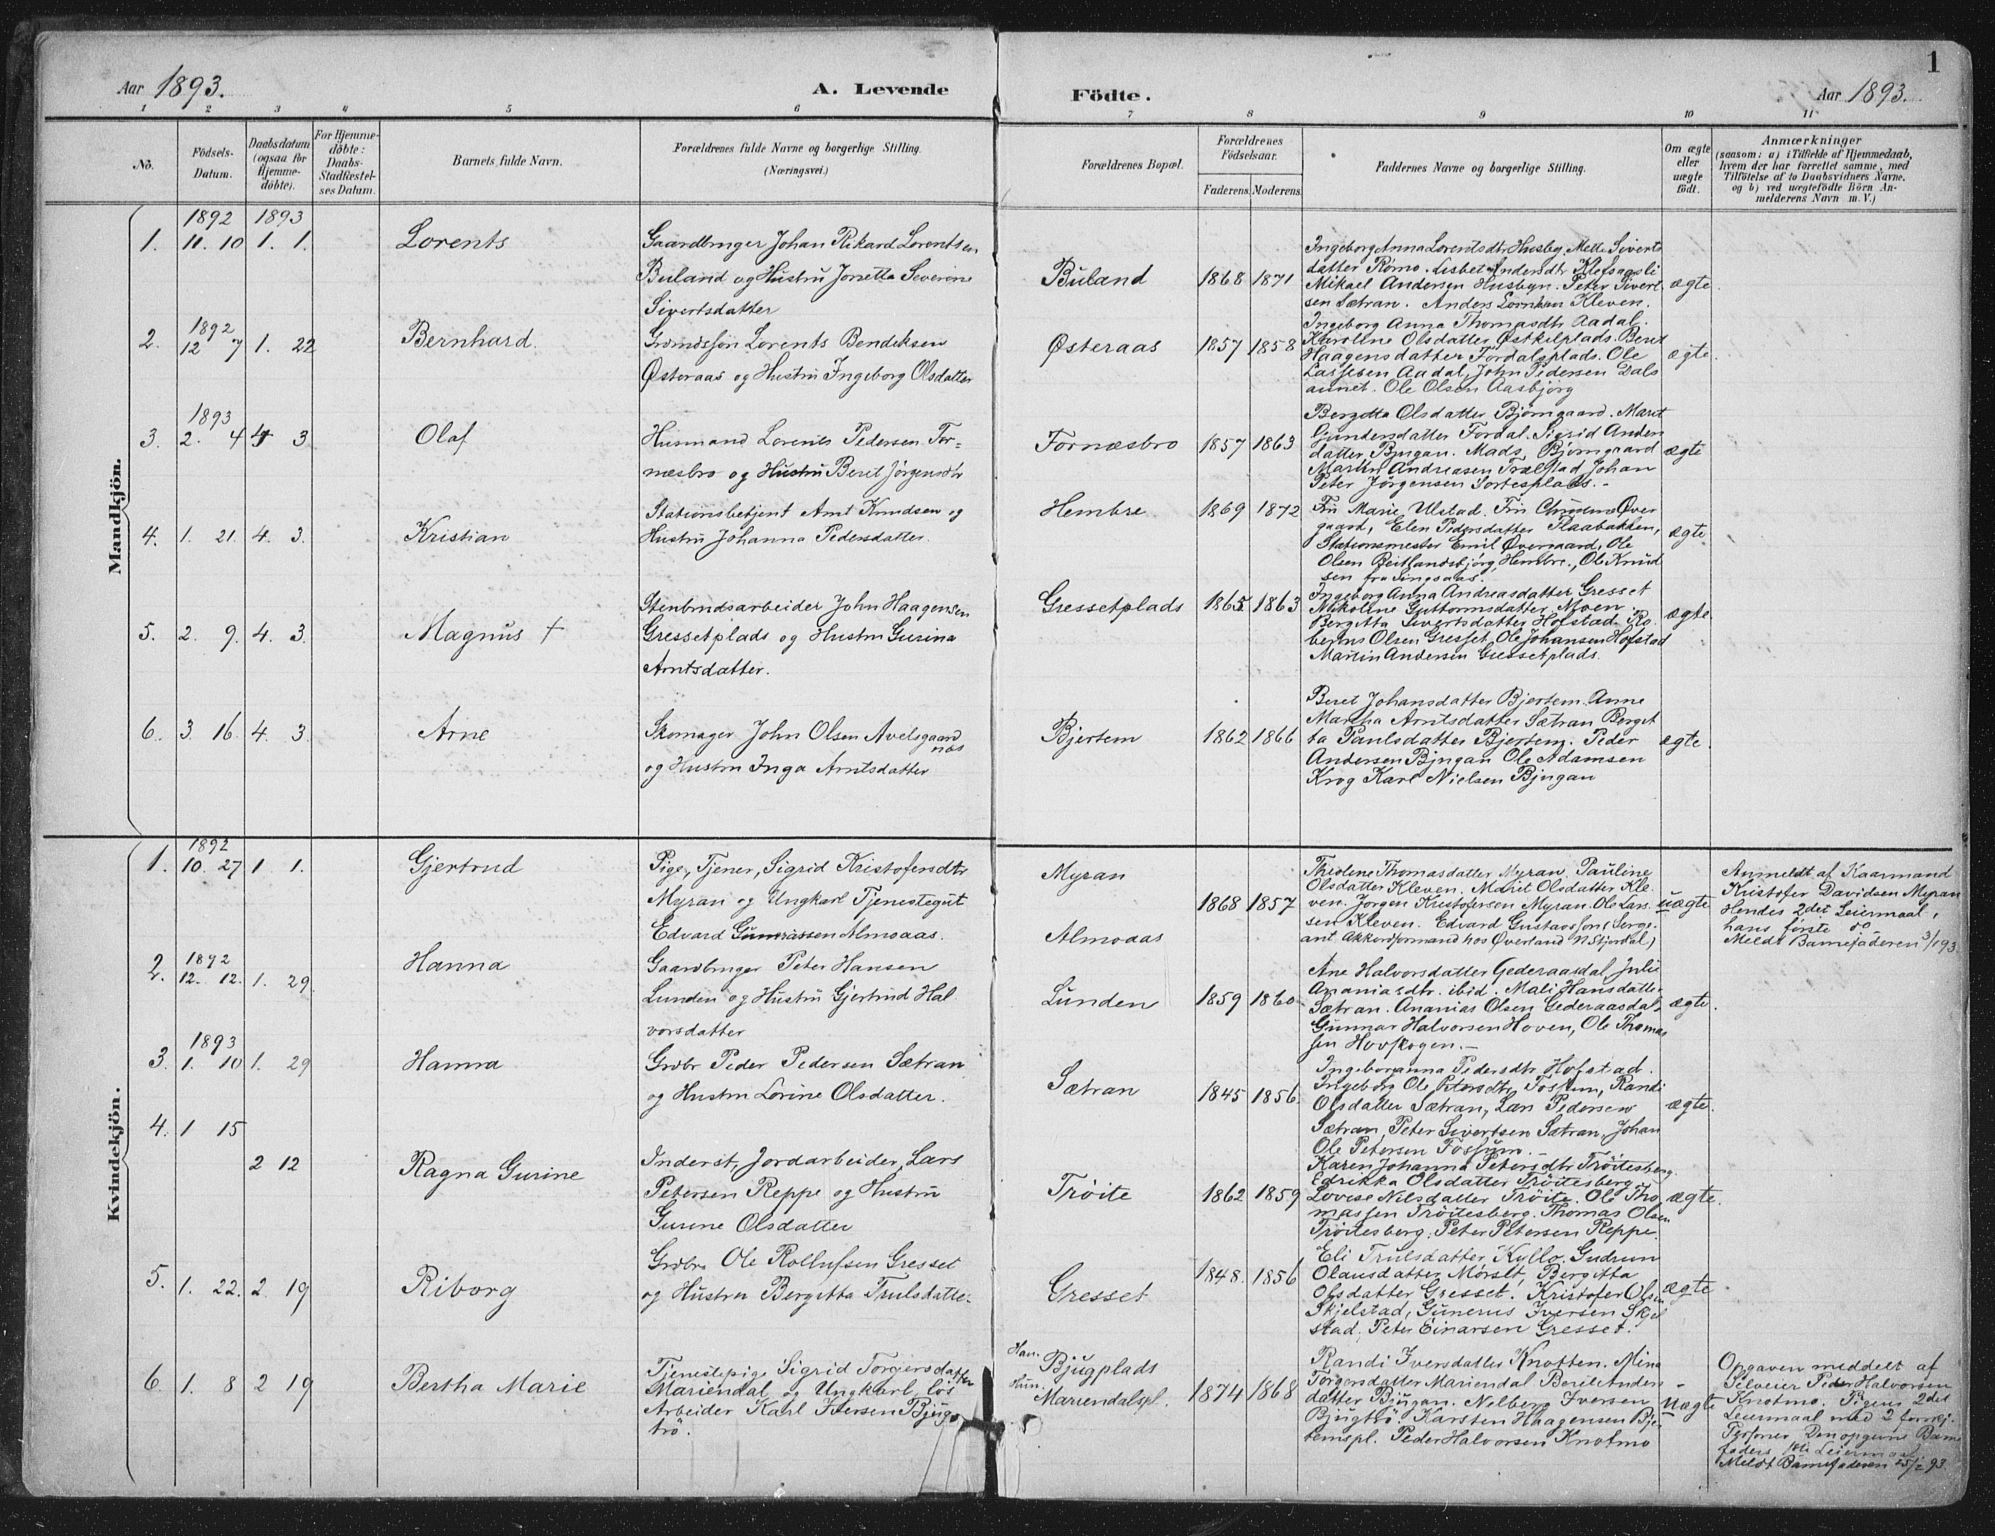 1
Aar 1893.
A. Levende
Födte.
Aar 1893.
1 2 3 4 5 6 7 8 9 10 11
No.
Födsels-
Datum.
Daabsdatum
(ogsaa for
Hjemme-
döbte).
For Hjemme-
döbte:
Daabs-
Stadfæstel-
ses Datum.
Barnets fulde Navn.
Forældrenes fulde Navne og borgerlige Stilling.
(Næringsvei.)
Forældrenes Bopæl.
Forældrenes
Födselsaar.
Faderens. Moderens.
Faddernes Navne og borgerlige Stilling.
Om ægte
eller
uægte
födt.
Anmærkninger
(saasom: a) i Tilfælde af Hjemmedaab,
hvem der har forrettet samme, med
Tilföielse af to Daabsvidners Navne,
og b) ved uægtefödte Börn An-
melderens Navn m. V.)
Mandkjön.
1892 1893
1. 11. 10 1. 1.
Lorents
Gaardbruger Johan Rikard Lorentsen
Buland og Hustru Jonetta Severine
Sivertsdatter
Buland
1868 1871
Ingeborg Anna Lorentsdtr Husby. Mette Siverts
datter Rømo. Lisbet Andersdtr
Mikael Andersen Husbyn. Peter Sivert
sen Sætran. Anders Kleven.
ægte.
1892
2. 12 7 1. 22
Bernhard.
Lorents Bendiksen
Østeraas og Hustru Ingeborg Olsdatter
Østeraas
1857 1858
Ingeborg Anna Thomasdtr Aadal.
Karoline Olsdatter Østkilplads. Beret
Haagensdatter Fordalsplads. Ole
Larssen Aadal, John Pedersen Dals
aunet. Ole Olsen Aasbjörg
ægte.
1893
3. 2. 4 4 3
Olaf
Husmand Lorents Pedersen For-
næsbro og Hustru Beret Jörgensdtr
Fornæsbro
1857 1863
Bergitta Olsdatter Björngaard. Marit
Gundersdatter Fordal. Sigrid Anders
datter Bjugan. Mads Björngaard
Martin Andreasen Trælstad Johan
Peter Jörgensen Sortesplads.
ægte
4. 1. 21. 4. 3.
Kristian
Stationsbetjent Arnt Knudsen og
Hustru Johanna Pedersdatter.
Hembre
1869 1872
Fru Marie Ulstad. Fru Øver
gaard, Elen Pedersdatter Raabakken,
Stationsmester Emil Øvergaard, Ole
Olsen Hembre., Ole Knud
sen fra Singsaas.
ægte
5. 2. 9. 4. 3.
Magnus +
Stenbrudsarbeider John Haagensen
Gressetplads og Hustru Gurina
Arntsdatter.
Gressetplads
1865 1863
Ingeborg Anna Andreasdatter Gresset
Nikoline Guttormsdatter Moen.
Bergitta Sivertsdatter Hofstad. Ro-
Olsen Gresset, Ole Johansen Hofstad
Martin Andersen Gressetplads.
ægte.
6. 3 16. 4. 3.
Arne
Skomager John Olsen Avelsgaard
næs
og Hustru Inga Arntsdatter
Bjertem
1862 1866
Beret Johansdatter Bjertem. Anne
Martha Arntsdatter Sætran Berget
ta Paulsdatter Bjertem. Peder
Andersen Bjugan Ole Adamsen
Krog Karl Nielsen Bjugan
ægte.
Kvindekjön.
1892
1. 10. 27 1 1.
Gjertrud
Pige, Tjener, Sigrid Kristofersdtr
Myran og Ungkarl Tjenestegut
Edvard Almoaas.
Myran
Almoaas
1868 1857
Tholine Thomasdatter Myran, Pauline
Olsdatter Kleven. Marit Olsdatter Kle
ven. Jorgen Kristofersen Myran. Ole Lars.
sen Kleven. Edvard Gustavsson (Serge-
ant Akkordformand hos Øverland N Stjørdal)
uægte
Anmeldt af Kaarmand
Kristofer Davidsen Myran
Hendes 2det Leiermaal,
hans förste do
Meldt Barnefaderen 3/1 93.
1892
2. 12. 12. 1. 29.
Hanna
Gaardbruger Peter Hansen
Lunden og Hustru Gjertrud Hal
vorsdatter
Lunden
1859 1860
Ane Halvorsdatter Gederaasdal, Julie
Ananiasdtr. ibid. Mali Hansdatter
Sætran. Ananias Olsen Gederaasdal,
Gunnar Halvorsen Hoven, Ole Thomas
sen Hovskogen.
ægte.
1893
3. 1. 10 1. 29
Hanna
Grdbr Peder Pedersen Sætran
og Hustru Lorine Olsdatter.
Sætran
1845 1856.
Ingeboranna Pedersdtr Hofstad.
Ingeborg Ole Petersdtr Fossum, Randi
Olsdatter Sætran, Lars Pedersen
Sætran, Peter Sivertsen Sætran, Johan
Ole Petersen Fossum.
ægte.
4. 1 15
2 12
Ragna Gurine
Inderst, Jordarbeider, Lars
Petersen Reppe og Hustru
Gurine Olsdatter
Tröite
1862 1859
Karen Johanna Petersdtr Tröitesberg.
Edrikka Olsdatter Tröitesberg
Lovise Nilsdatter Tröite. Ole Tho
massen Tröitesberg. Thomas Olsen
Tröitesberg, Peter Petersen Reppe.
ægte.
5. 1. 22. 2 19
Riborg
Grdbr. Ole Rollufsen Gresset
og Hustru Bergitta Trulsdatter.
Gresset
1848. 1856
Eli Trulsdatter Kyllo, Gudrun
Olausdatter Mørset, Bergitta
Olsdatter Gresset. Kristofer Olsen
Skjelstad, Gunerus Iversen Skjel
stad, Peter Einarsen Gresset.
ægte
6 1. 8 2 19
Bertha Marie
Tjenestepige Sigrid Torgersdatter
Mariendal og Ungkarl, lös
Arbeider Karl Iversen Bjug-
trö.
Han. Bjugplads
Hun. Mariendalspl.
1874 1868
Randi Iversdatter Knotten. Mina
Torgersdatter Mariendal Beret Anders
datter Bjugan. Iversen
Bjugtrö. Karsten Haagensen Bjer
temspl. Peder Halvorsen Knotmo
uægte
Opgaven meddelt af
Selveier Peder Halvorsen
Knotmo. Pigens 2det
Leiermaal med 2 forskj.
Personer. Den opgivne Barne
faders 1ste Leiermaal
Meldt Barnefaderen 25/2 93.